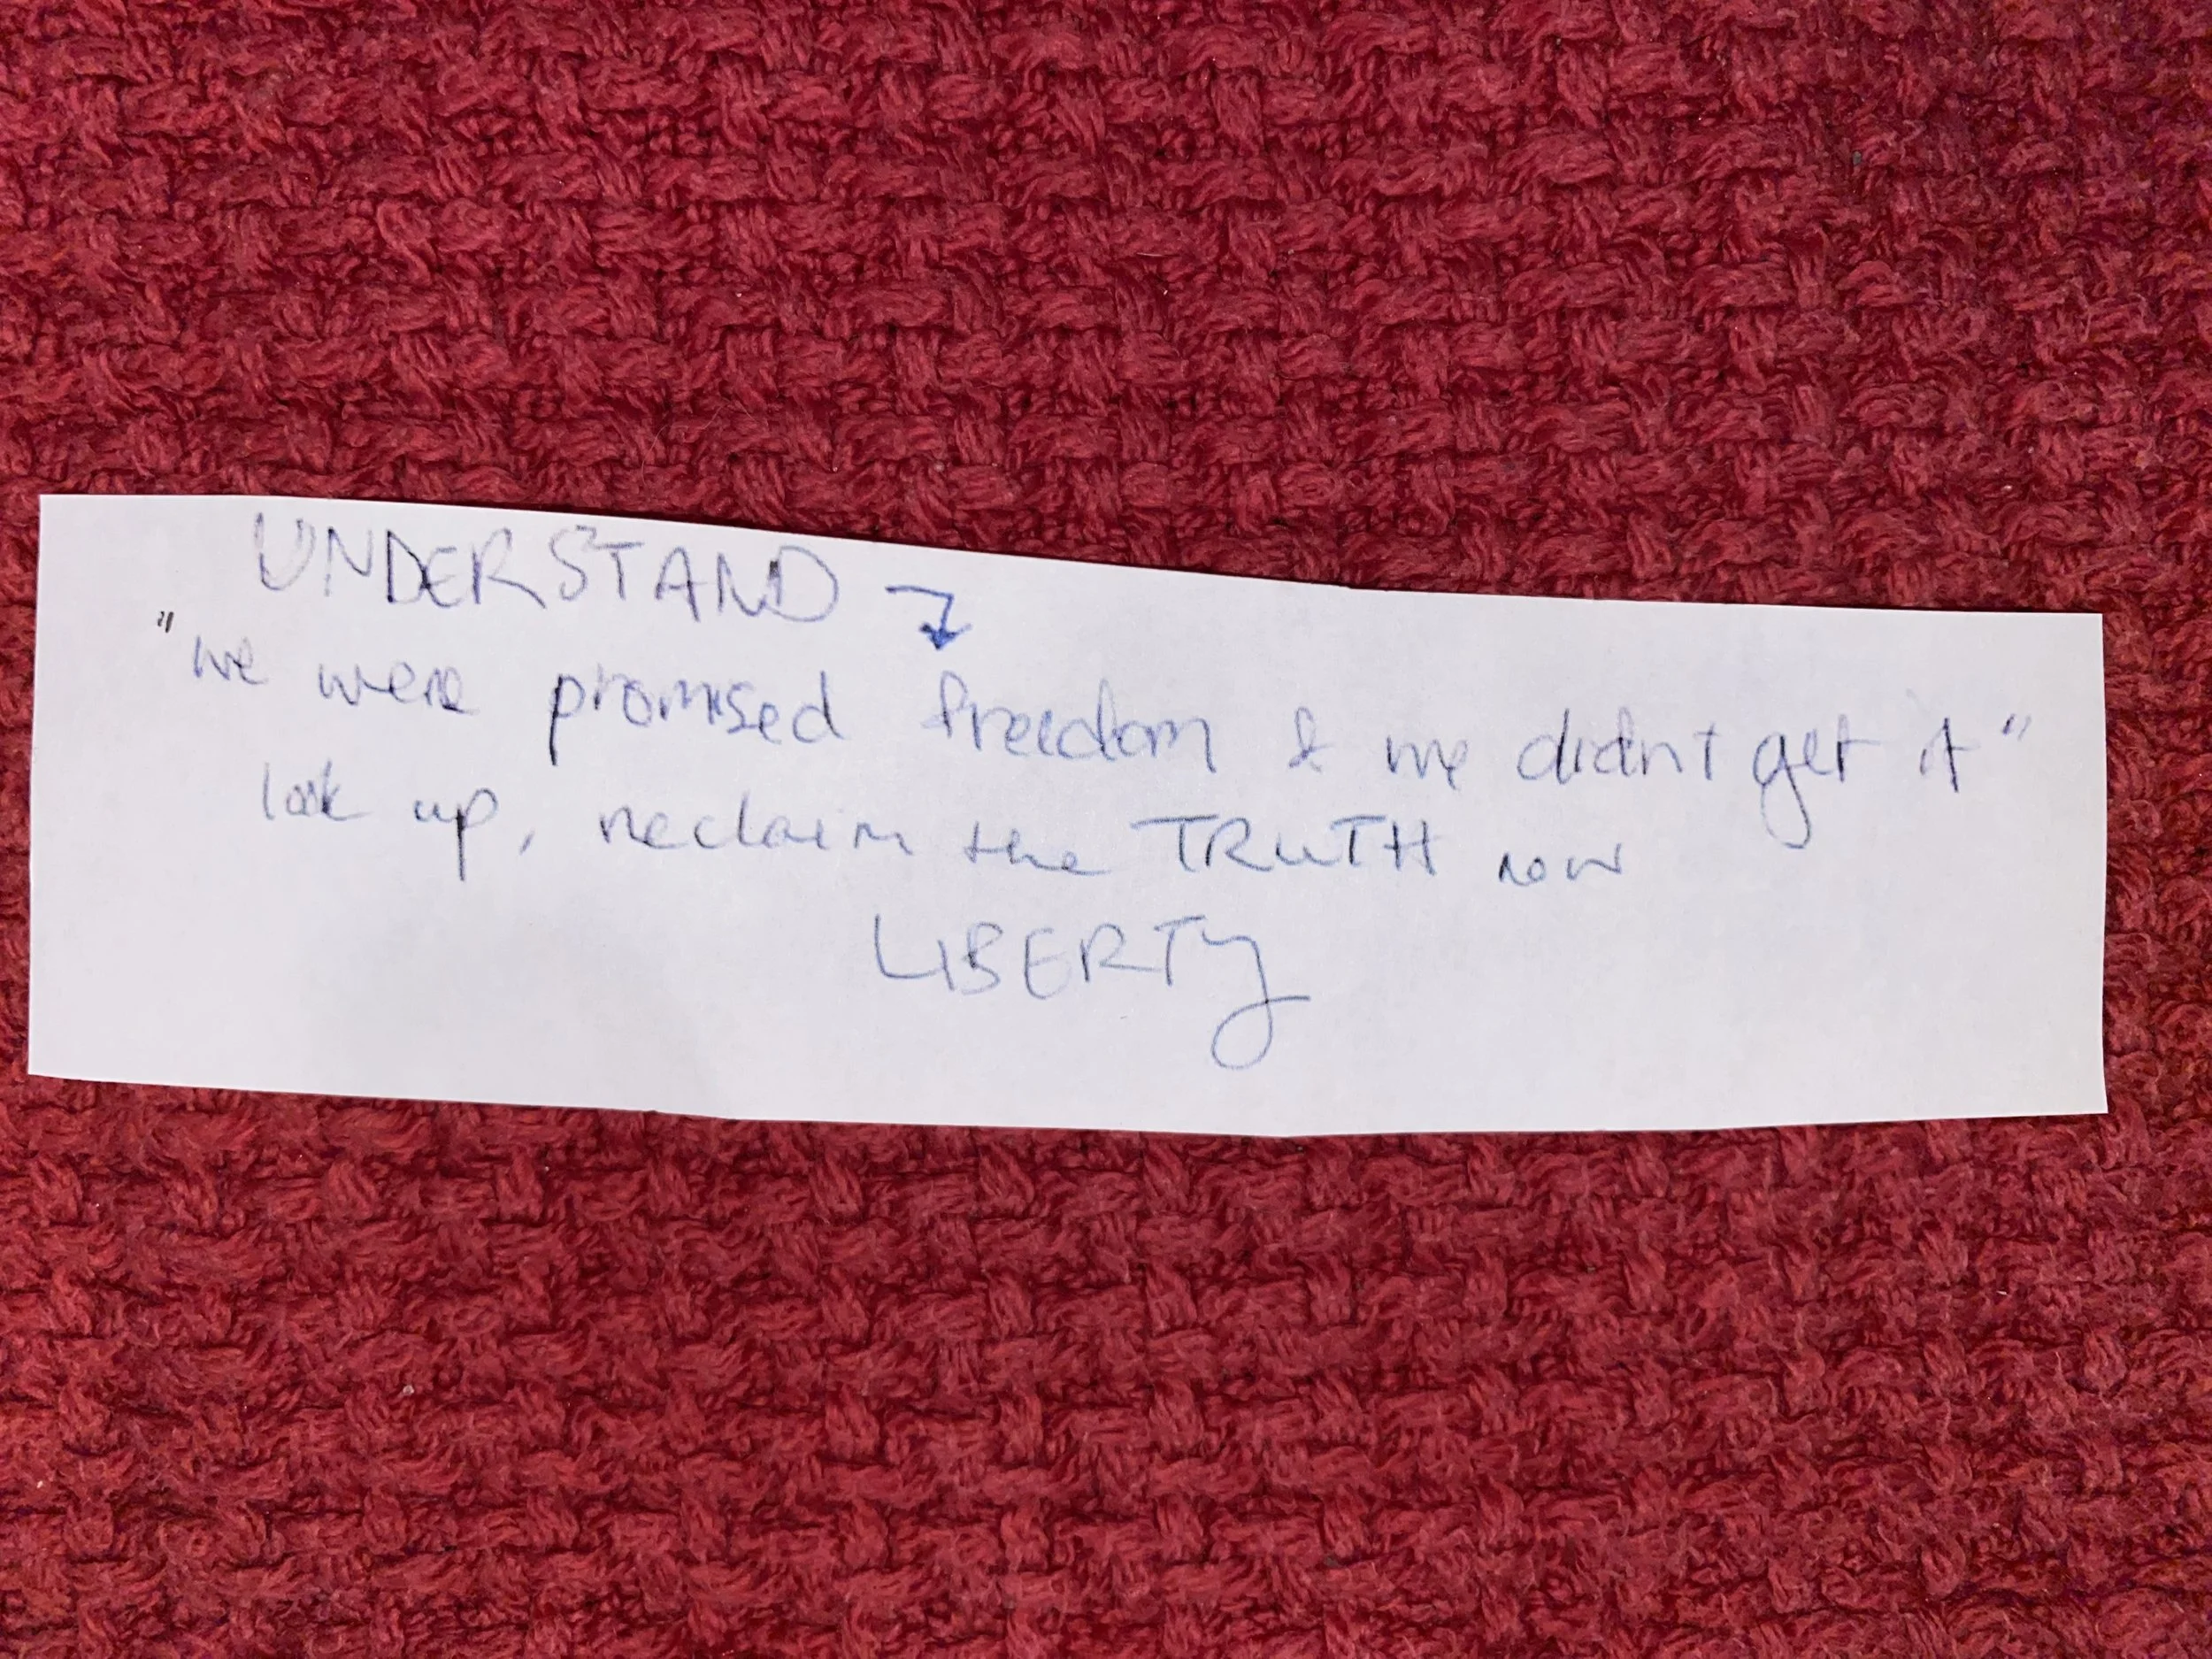 UNDERSTAND
"we were promised freedom & we didn't get it"
look up, reclaim the TRUTH now
LIBERTY